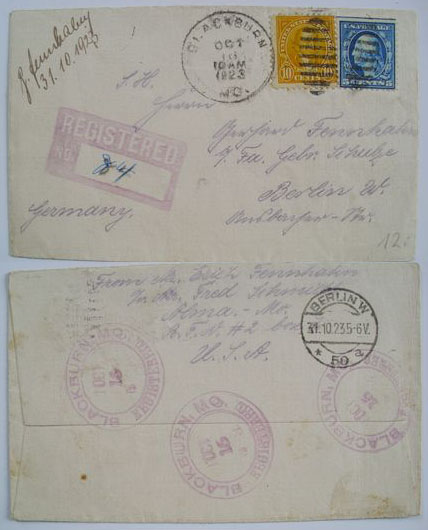 J. Fennhahn
31.10.1923
BLACKBURN
OCT
10AM
1923
MO.
10 CENTS 10
5 CENTS 5
S. H.
Herrn
REGISTERED
NO.
84
Gerhard Fennhahn
Fa. Gebr. Schulze
Berlin W.
Germany.
12.-
From Mr. Erich Fennhahn
Fred
Alma - Mo.
#2
U. S. A.
BERLIN W
31.10.23 5-6 V.
* 50 a
BLACKBURN, MO. REGISTERED
OCT
BLACKBURN, MO. REGISTERED
OCT
BLACKBURN, MO. REGISTERED
OCT